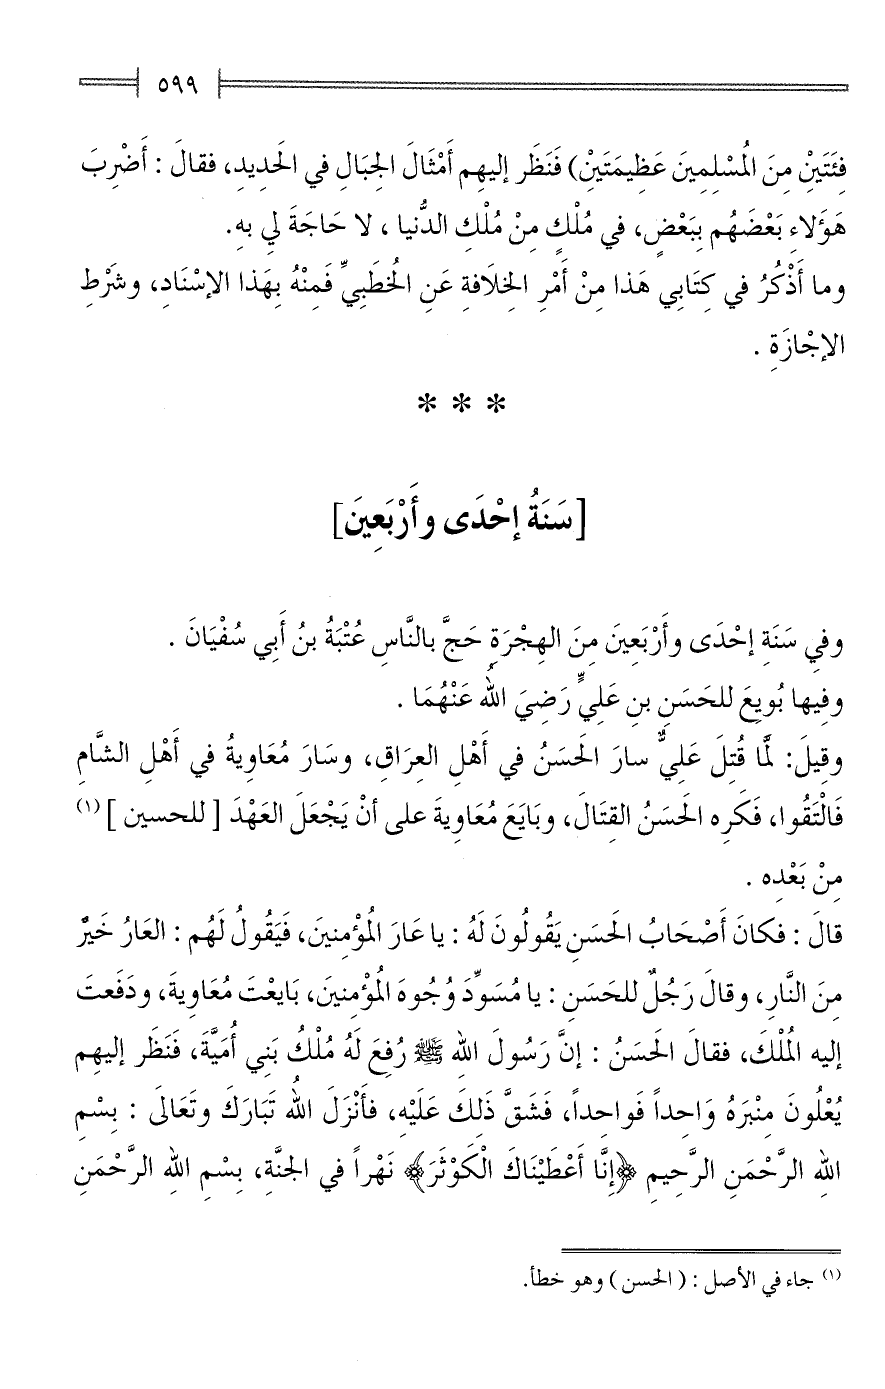 ٥٩٩
فِئَتَيْنْ مِنَ الُمسْلِمِينَ عَظِيمَتَيْنْ) فَنَظَر إليهِم أَمْثَالَ الجِبَالِ في الحَدِيدِ، فقالَ : أَضْرِبَ
هَؤَلاءِ بَعْضَهُم بِبَعْضٍ، في مُلْكٍ مِنْ مُلْكِ الدُّنيا ، لا حَاجَةَ لي بهِ.
وما أَذْكُرُ في كِتَابِي هَذا مِنْ أَمْرِ الخِلَافةِ عَنِ الخُطَبِيِّ فَمِنْهُ بِهَذا الإسْنَادِ، وشَرْطِ
الإجْازَةِ .
* * *
[سَنَةُ إحْدَى وأَرْبَعِينَ]
وفي سَنَةِ إحْدَى وأَرْبَعِينَ مِنَ الهِجْرَةِ حَجَّ بالنَّاسِ عُتْبَةُ بنُ أَبي سُفْيَانَ .
وفيها بُويِعَ للحَسَنِ بنِ عَلِيٍّ رَضِيَ اللهُ عَنْهُمَا .
وقِيلَ: لَمَّا قُتِلَ عَلِيٌّ سارَ الحَسَنُ في أَهْلِ العِرَاقِ، وسَارَ مُعَاويةُ في أَهْلِ الشَّامِ
فَالْتَقُوا، فَكَرِه الحَسَنُ القِتَالَ، وبَايَعَ مُعَاوِيةَ على أنْ يَجْعَلَ العَهْدَ [ للحسين ] (١)
مِنْ بَعْدِه .
قالَ : فكانَ أَصْحَابُ الحَسَنِ يَقُولُونَ لَهُ : يا عَارَ الُمؤْمِنينَ، فَيَقُولُ لَهُم : العَارُ خَيْرٌ
مِنَ النَّارِ، وقالَ رَجُلٌ للحَسَنِ : يا مُسَوِّدَ وُجُوهَ الُمؤْمِنينَ، بَايَعْتَ مُعَاوِيةَ، ودَفَعتَ
إليهِ الُملْكَ، فقالَ الحَسَنُ : إنَّ رَسُولَ اللهِ ﷺ رُفِعَ لَهُ مُلْكُ بَنِي أُمَيَّةَ، فَنَظَر إليهِم
يُعْلُونَ مِنْبَرَهُ وَاحِداً فَواحِداً، فَشَقَّ ذَلِكَ عَلَيْهِ، فأَنْزَلَ اللهُ تَبَارَكَ وتَعَالَى : بِسْمِ
اللهِ الرَّحْمَنِ الرَّحِيمِ ﴿إِنَّا أَعْطَيْنَاكَ الْكَوْثَرَ﴾ نَهْراً في الجنَّةِ، بِسْمِ اللهِ الرَّحْمَنِ
(١) جاء في الأصل : ( الحسن ) وهو خطأ.